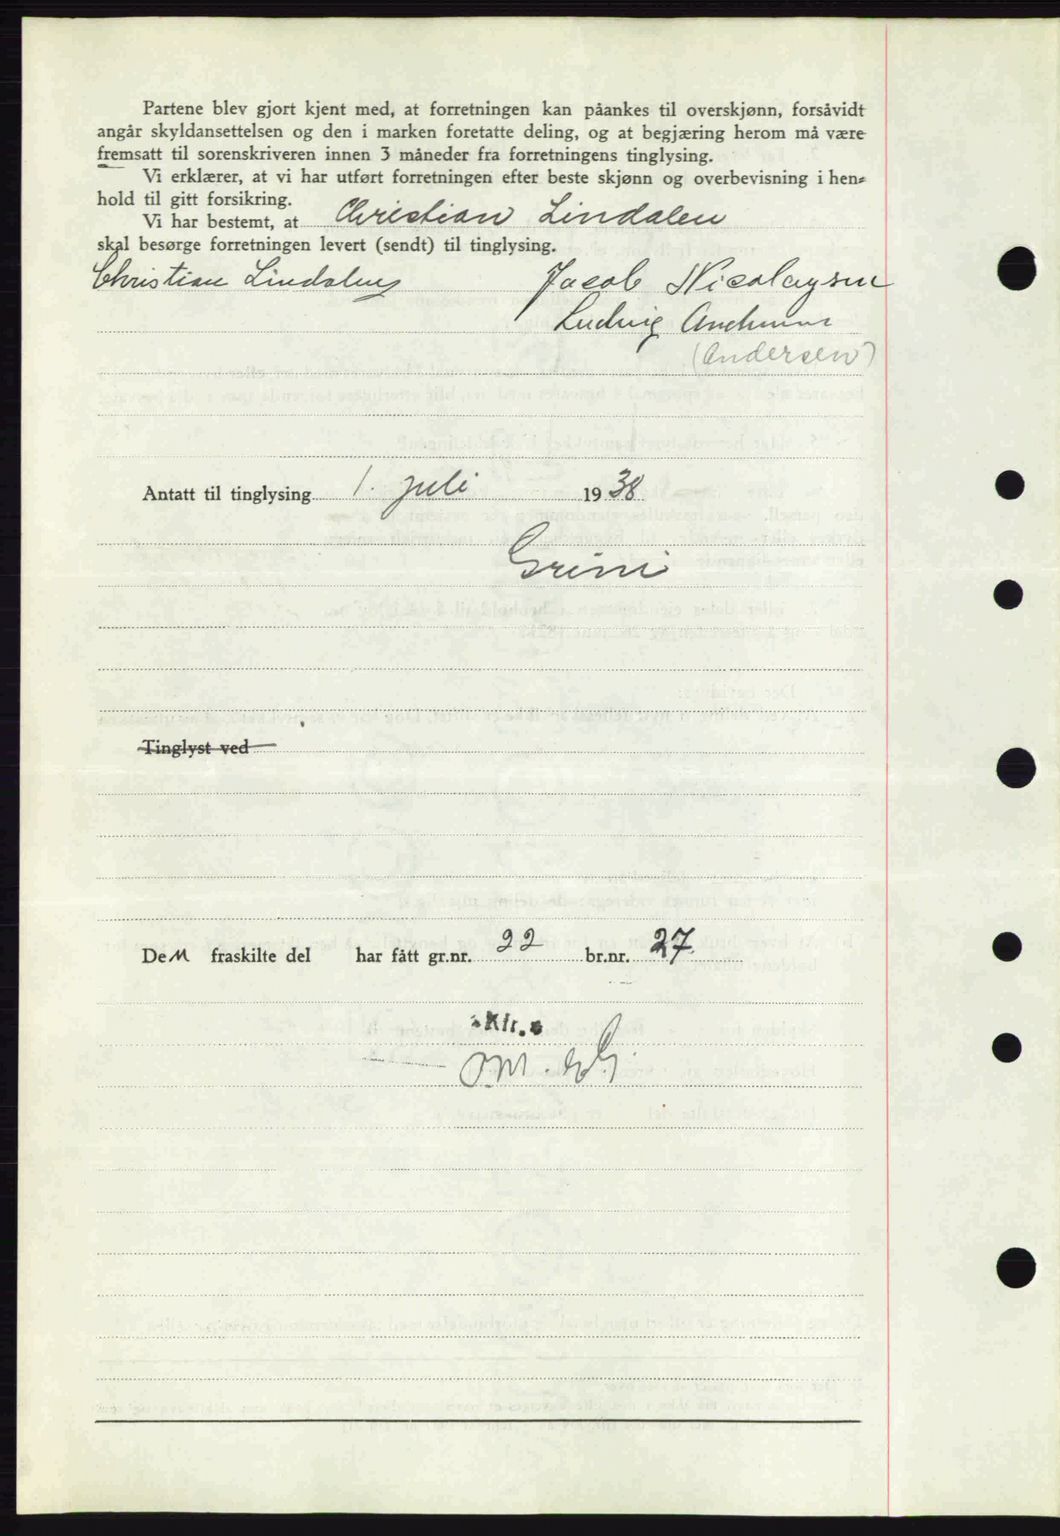 Partene blev gjort kjent med, at forretningen kan påankes til overskjønn, forsåvidt
angår skyldansettelsen og den i marken foretatte deling, og at begjæring herom må være
fremsatt til sorenskriveren innen 3 måneder fra forretningens tinglysing.
Vi erklærer, at vi har utført forretningen efter beste skjønn og overbevisning i hen-
hold til gitt forsikring.
Vi har bestemt, at Christian Lindalen
skal besørge forretningen levert (sendt) til tinglysing.
Christian Lindalen Jacob Nicolaysen
Ludvig Andersen
(Andersen)
Antatt til tinglysing 1. juli 1938
Grini
Tinglyst ved
Den fraskilte del har fått gr.nr. 22 br.nr. 27
Kfr.